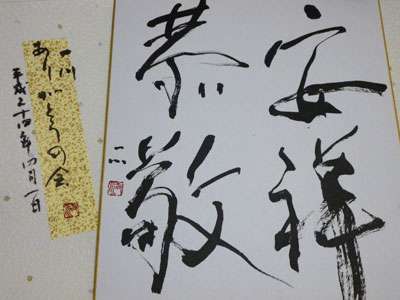 安祥
恭敬
ありがとうの会
平成二十四年四月一日